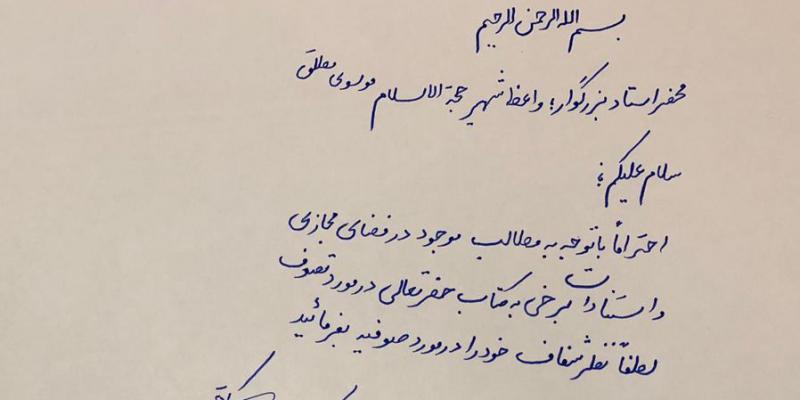 بسم الله الرحمن الرحیم
محضر استاد بزرگوار؛ واعظ شهیر حجة الاسلام موسوی مطلق
سلام علیکم؛
احتراماً با توجه به مطالب موجود در فضای مجازی
و استنادات برخی به کتاب حضرتعالی در مورد تصوف
لطفاً نظر شفاف خود را در مورد صوفیه بفرمائید